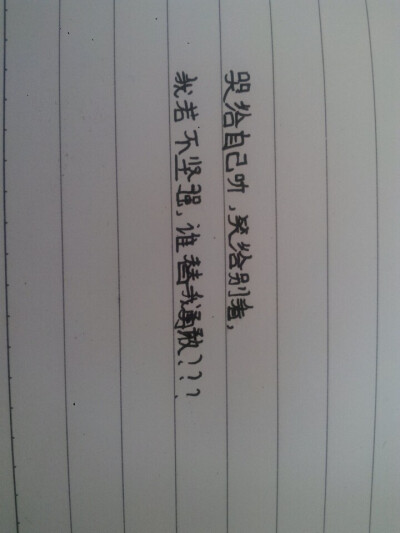 哭给自己听,笑给别看,
我若不坚强,谁替我勇敢???